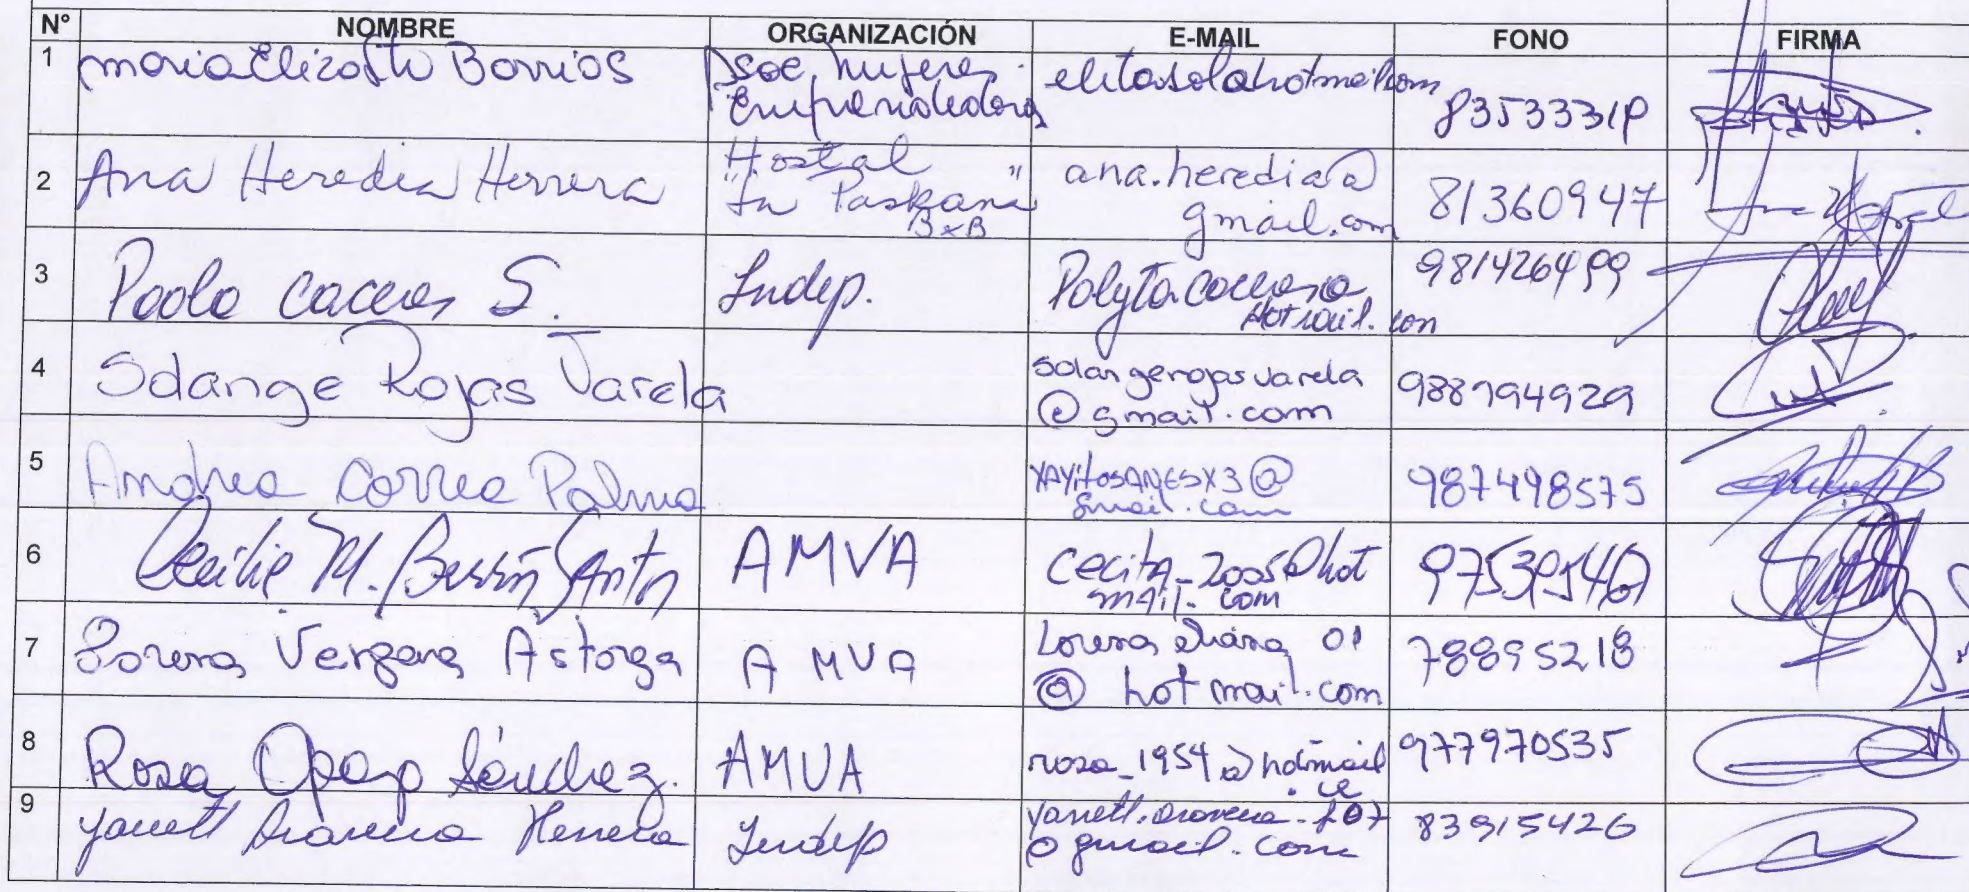 N° NOMBRE ORGANIZACIÓN E-MAIL FONO FIRMA
1 maria Elizabeth Barrios Asoc. Mujeres Emprendedoras 8353331P
2 Ana Heredia Herrera Hostal "La Paskana" BxB ana.heredia@gmail.com 81360947
3 Paola Caceres S. Indep. Hotmail.com 981426499
4 Solange Rojas Varela solangerojasvarela@gmail.com 988794929
5 Andrea Correa Palma XAYITOSANESX3@gmail.com 987498575
6 Cecilia M. AMVA cecita_2005@hotmail.com
7 Lorena Vergara Astorga AMVA 01@hotmail.com 78895218
8 Rosa Opazo Sánchez. AMVA rosa_1954@hotmail 977970535
9 Yanett Aravena Herrera Indep @gmail.com 83915426